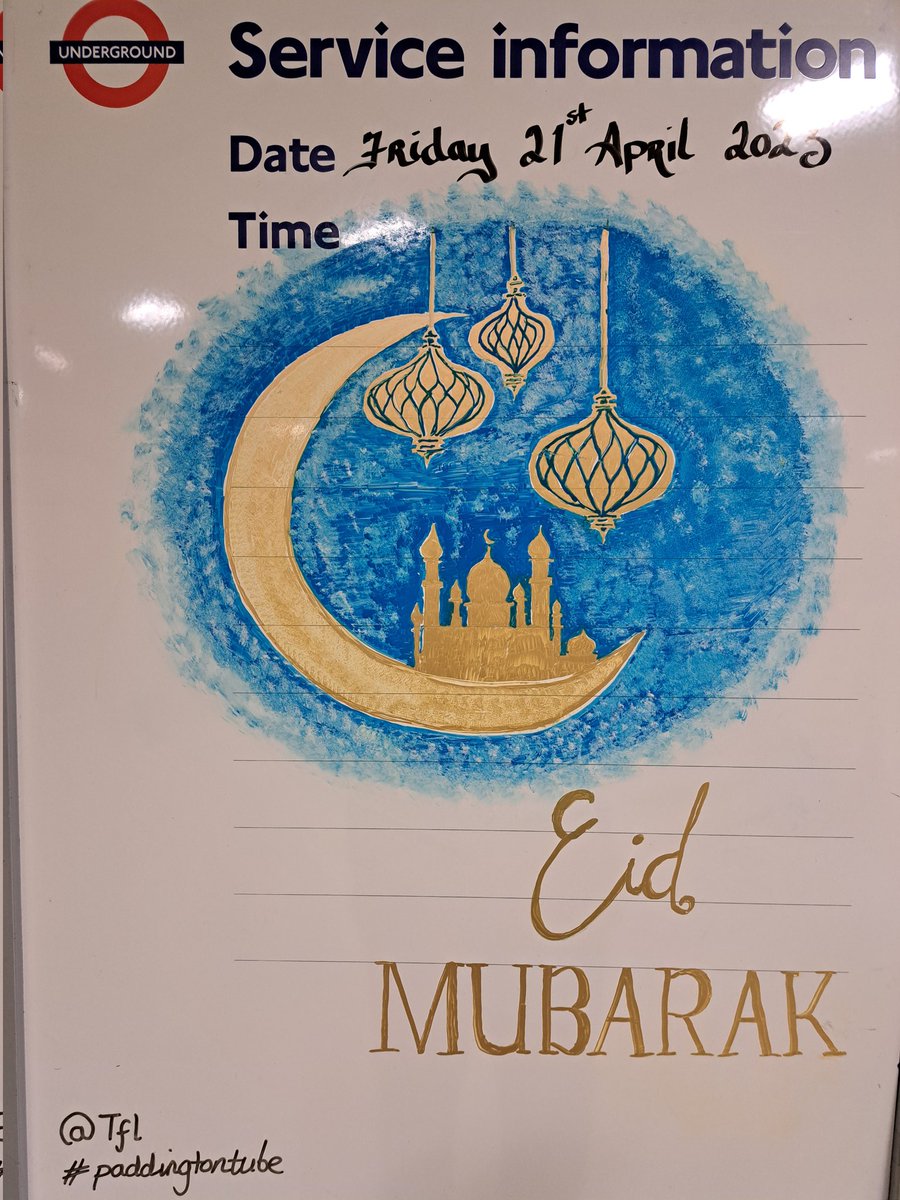 UNDERGROUND
Service information
Date Friday 21st April 2023
Time
Eid
MUBARAK
@Tfl
#paddingtontube